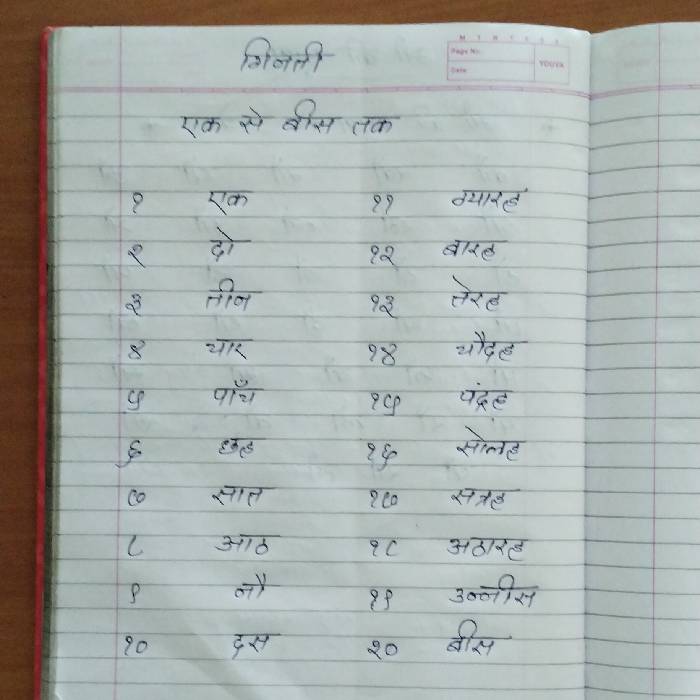 गिनती
M T W T F S S
Page No.:
Date:
YOUVA
एक से बीस तक
१ एक ११ ग्यारह
२ दो १२ बारह
३ तीन १३ तेरह
४ चार १४ चौदह
५ पाँच १५ पंद्रह
६ छह १६ सोलह
७ सात १७ सत्रह
८ आठ १८ अठारह
९ नौ १९ उन्नीस
१० दस २० बीस